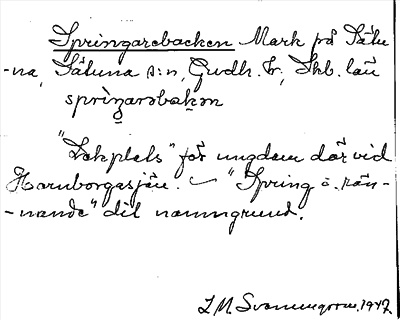 Springarebacken Mark på Sätu-
-na, Sätuna s:n, Gudh. hr, Skb. län
springarəbakən
"Lekplats" för ungdom där vid
Hornborgasjön. – "Spring å rän-
-nande" dit namngrund.
1947.